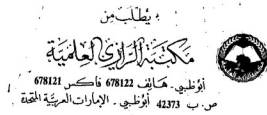 يطلب من
مكتبة الرازي العلمية
أبوظبي . هاتف 678122 فاكس 678121
ص . ب 42373 أبوظبي . الإمارات العربية المتحدة